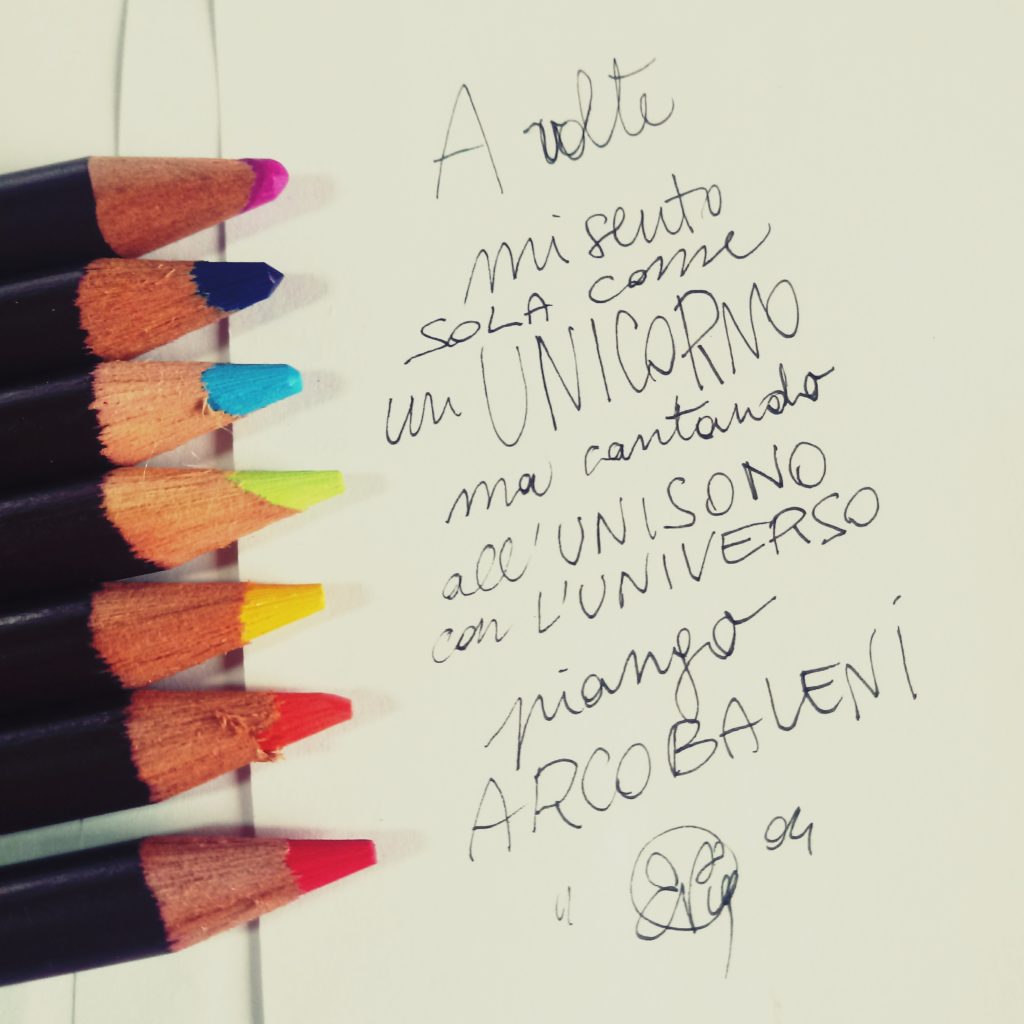 A volte
mi sento
SOLA come
un UNICORNO
ma cantando
all'UNISONO
con L'UNIVERSO
piango
ARCOBALENI
94